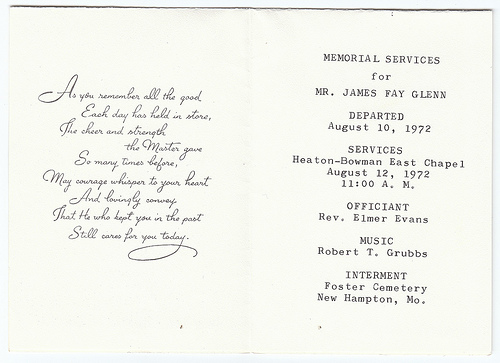 As you remember all the good
Each day has held in store,
The cheer and strength
the Master gave
So many times before,
May courage whisper to your heart
And lovingly convey
That He who kept you in the past
Still cares for you today.
MEMORIAL SERVICES
for
MR. JAMES FAY GLENN
DEPARTED
August 10, 1972
SERVICES
Heaton-Bowman East Chapel
August 12, 1972
11:00 A. M.
OFFICIANT
Rev. Elmer Evans
MUSIC
Robert T. Grubbs
INTERMENT
Foster Cemetery
New Hampton, Mo.